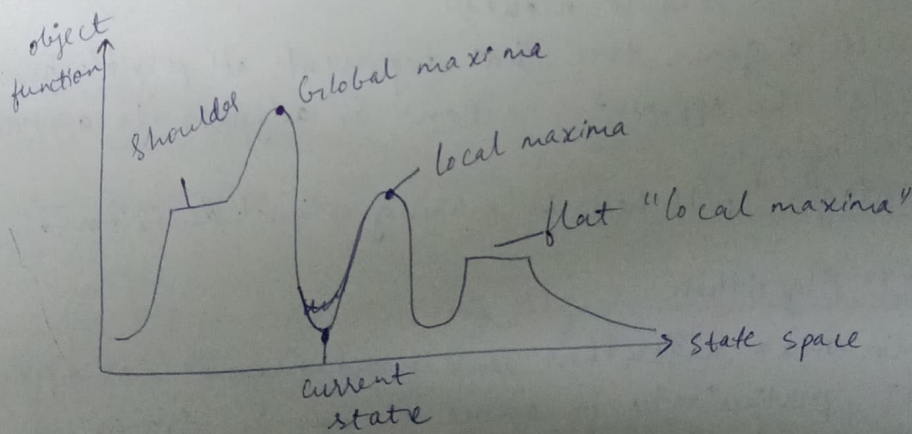 object
function
Shoulder
Global maxima
local maxima
flat "local maxima"
state space
current
state